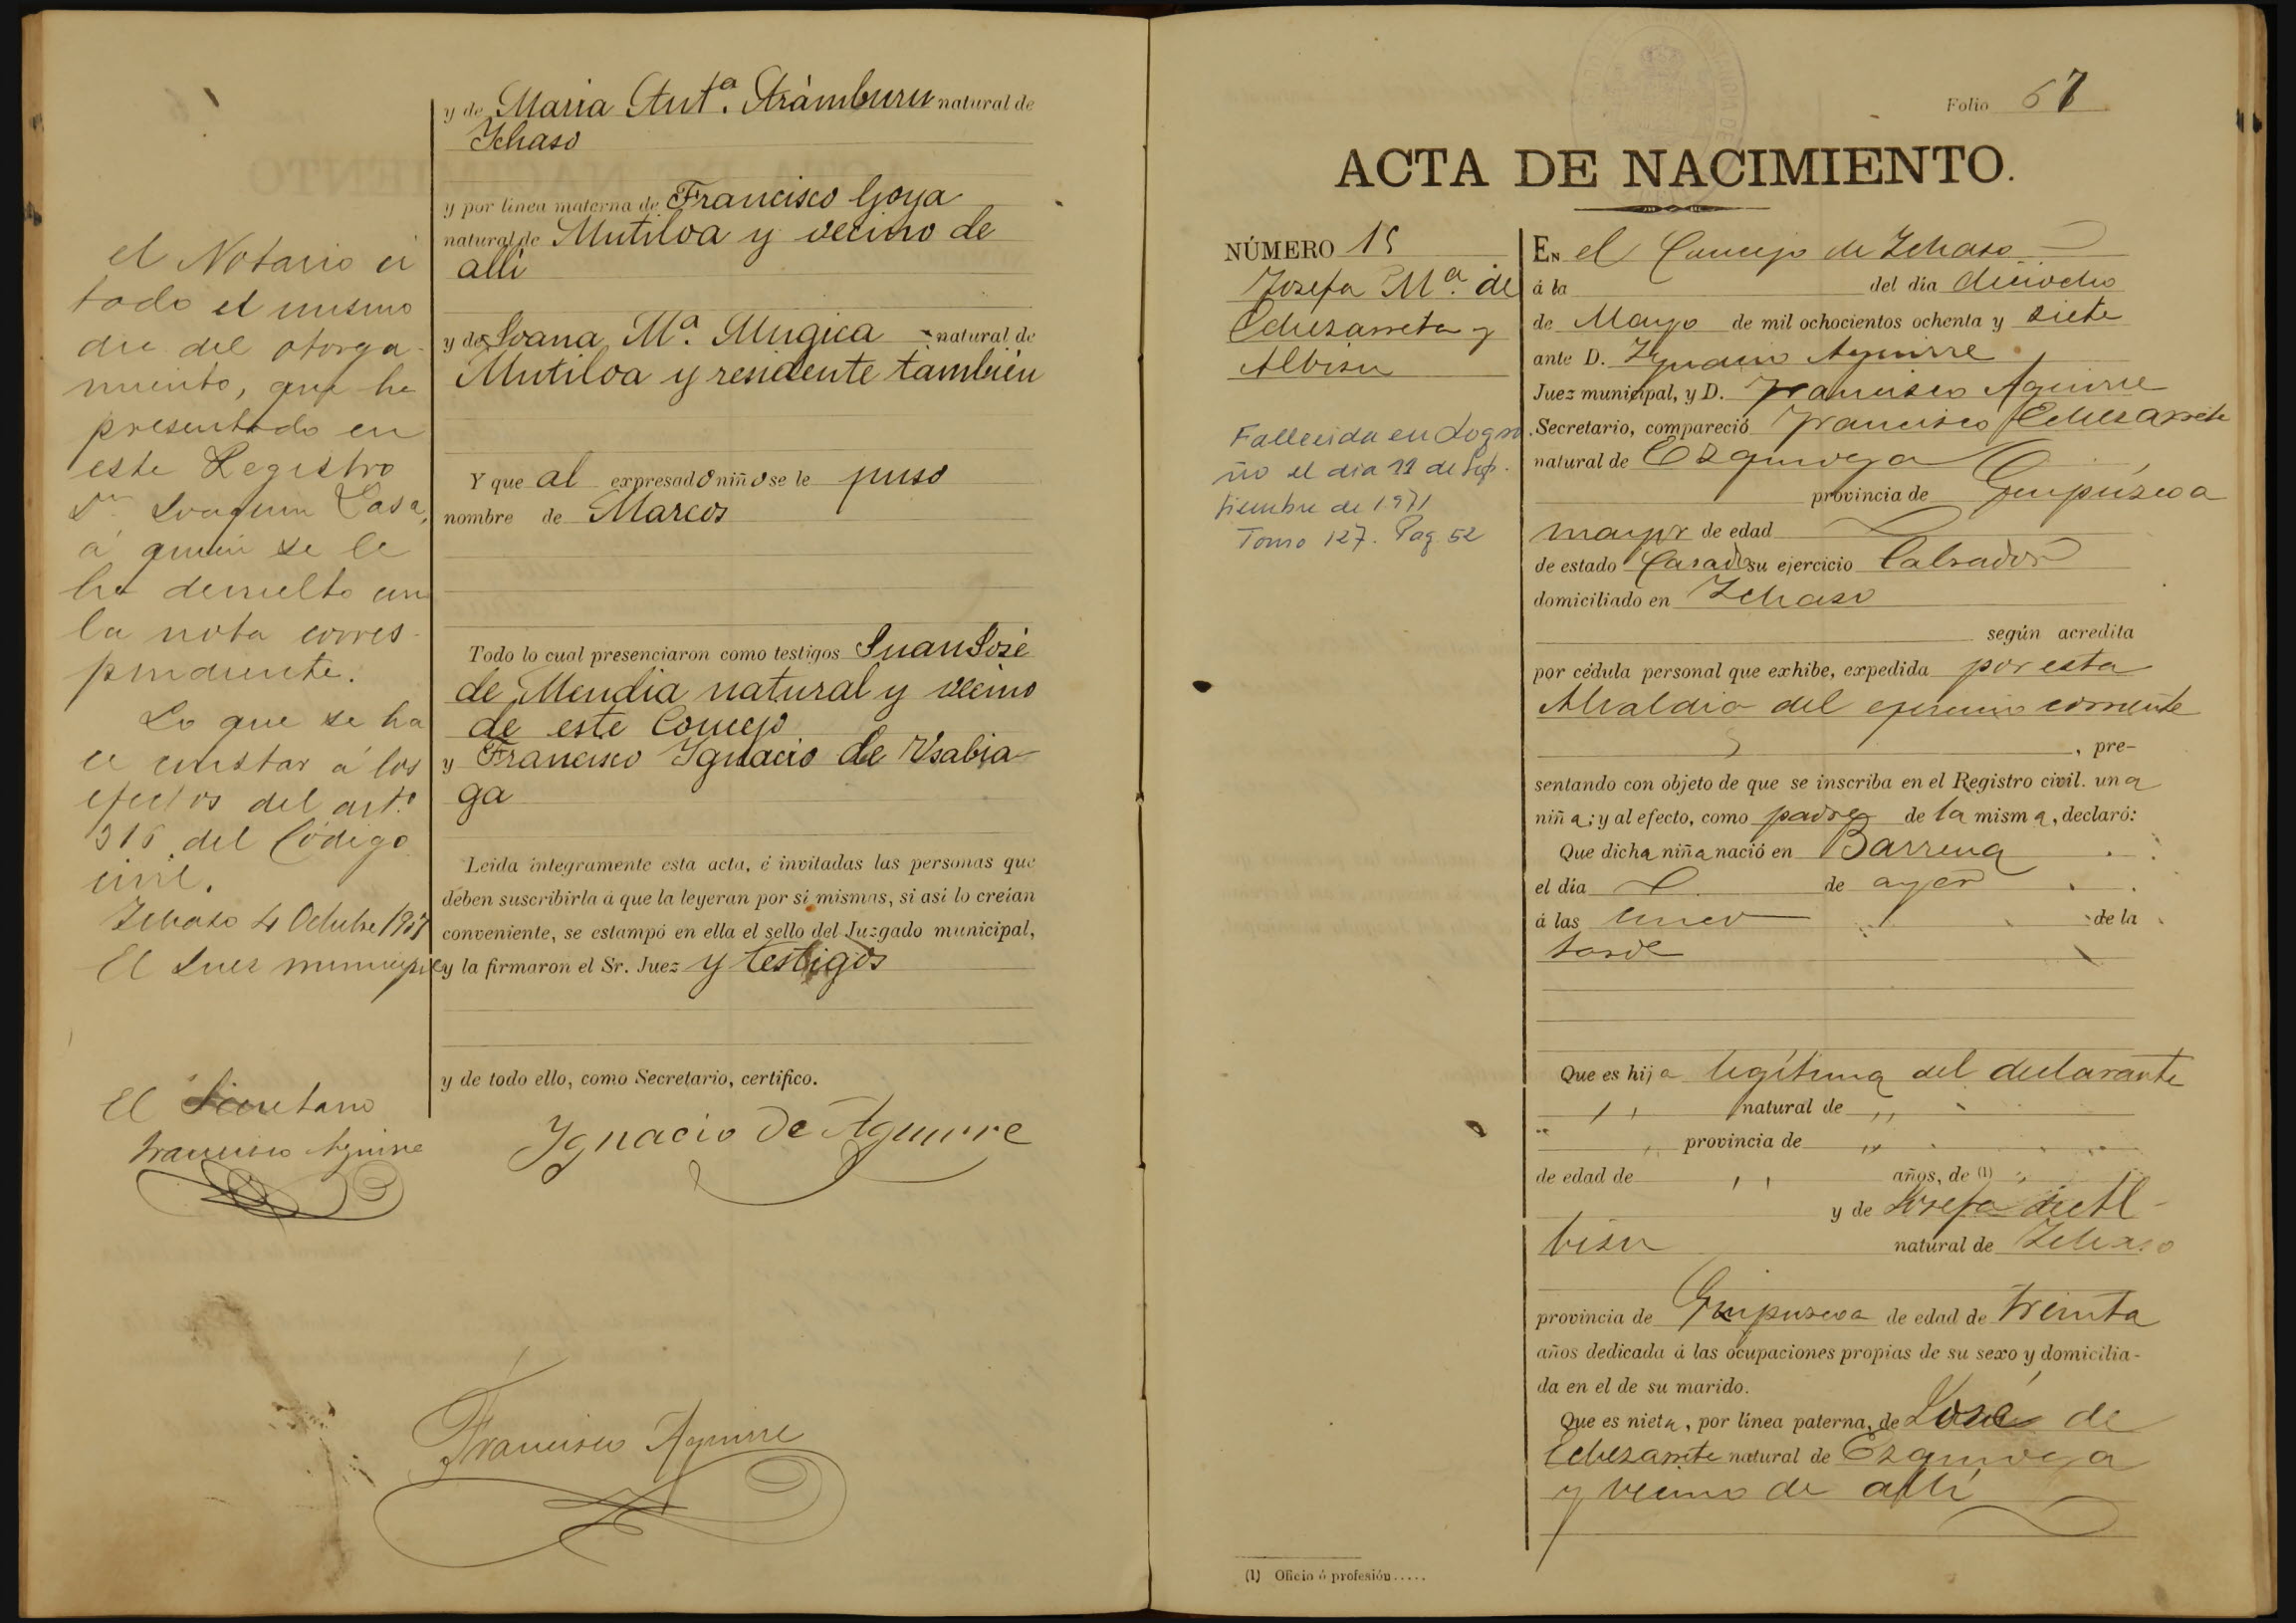 y de Maria Ant.ª Arámburu natural de
Ichaso
y por línea materna de Francisco Goya
natural de Mutiloa y vecino de
allí
y de Joana M.ª Mugica natural de
Mutiloa y residente también
Y que al expresado niño se le puso
nombre de Marcos
Todo lo cual presenciaron como testigos Juan José
de Mendia natural y vecino
de este Concejo
y Francisco Ignacio de Usabia-
ga
Leída íntegramente esta acta, é invitadas las personas que
deben suscribirla á que la leyeran por sí mismas, si así lo creían
conveniente, se estampó en ella el sello del Juzgado municipal,
y la firmaron el Sr. Juez y testigos
y de todo ello, como Secretario, certifico.
Ignacio De Aguirre
Francisco Aguirre
el Notario ci
tado el mismo
dia del otorga-
miento, que ha
presentado en
este Registro
Dn Joaquin Casa,
á quien se le
ha devuelto con
la nota corres-
pondiente.
Lo que se ha
ce constar á los
efectos del art.º
316 del Código
civil.
Ichaso 4 Octubre
El Juez municipal
El Secretario
Francisco Aguirre
Folio 67
ACTA DE NACIMIENTO.
NÚMERO 15
Josefa M.ª de
Echezarreta y
Albisu
Fallecida en Logro
ño el dia 22 de Sep-
tiembre de 1971
Tomo 127. Pag 52
EN el Concejo de Ichaso
á la del día dieciocho
de Mayo de mil ochocientos ochenta y siete
ante D. Ygnacio Aguirre
Juez municipal, y D. Francisco Aguirre
Secretario, compareció Francisco Echezarreta
natural de Ezquioga
provincia de Guipúzcoa
mayor de edad
de estado Casado su ejercicio Labrador
domiciliado en Ichaso
según acredita
por cédula personal que exhibe, expedida por esta
Alcaldia del ejercicio corriente
, pre-
sentando con objeto de que se inscriba en el Registro civil. una
niña; y al efecto, como padre de la misma, declaró:
Que dicha niña nació en Barrena
el día de ayer
á las cinco de la
tarde
Que es hija legítima del declarante
" natural de "
" provincia de "
de edad de " años, de (1)
y de Josefa de Al-
bisu natural de Ichaso
provincia de Guipuzcoa de edad de treinta
años dedicada á las ocupaciones propias de su sexo y domicilia-
da en el de su marido.
Que es nieta, por línea paterna, de José de
Echezarreta natural de Ezquioga
y vecino de allí
(1) Oficio ó profesión.....